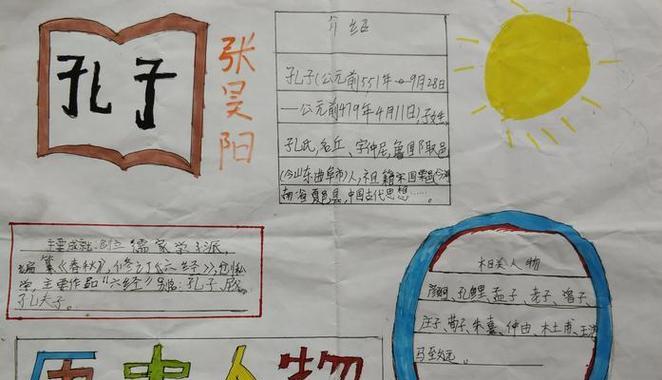 孔子
张昊阳
介绍
孔子(公元前551年 9月28日
—公元前479年4月11日),子姓,
孔氏,名丘,字仲尼,鲁国陬邑
(今山东曲阜市)人,祖籍宋国栗邑
南省夏邑县,中国古代思想……
主要成就:创立 儒家学派,
编纂《春秋》,修订《六经》,
学,主要作品"六经" 别称:孔子、
孔夫子。
相关人物
颜回、孔鲤、孟子、老子、曾子、
荀子、朱熹、仲由、
历史人物